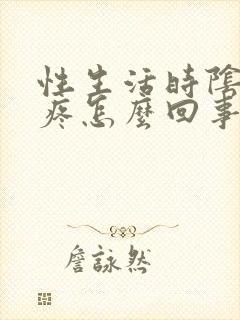 性生活時陰
疼怎麼回事
詹詠然